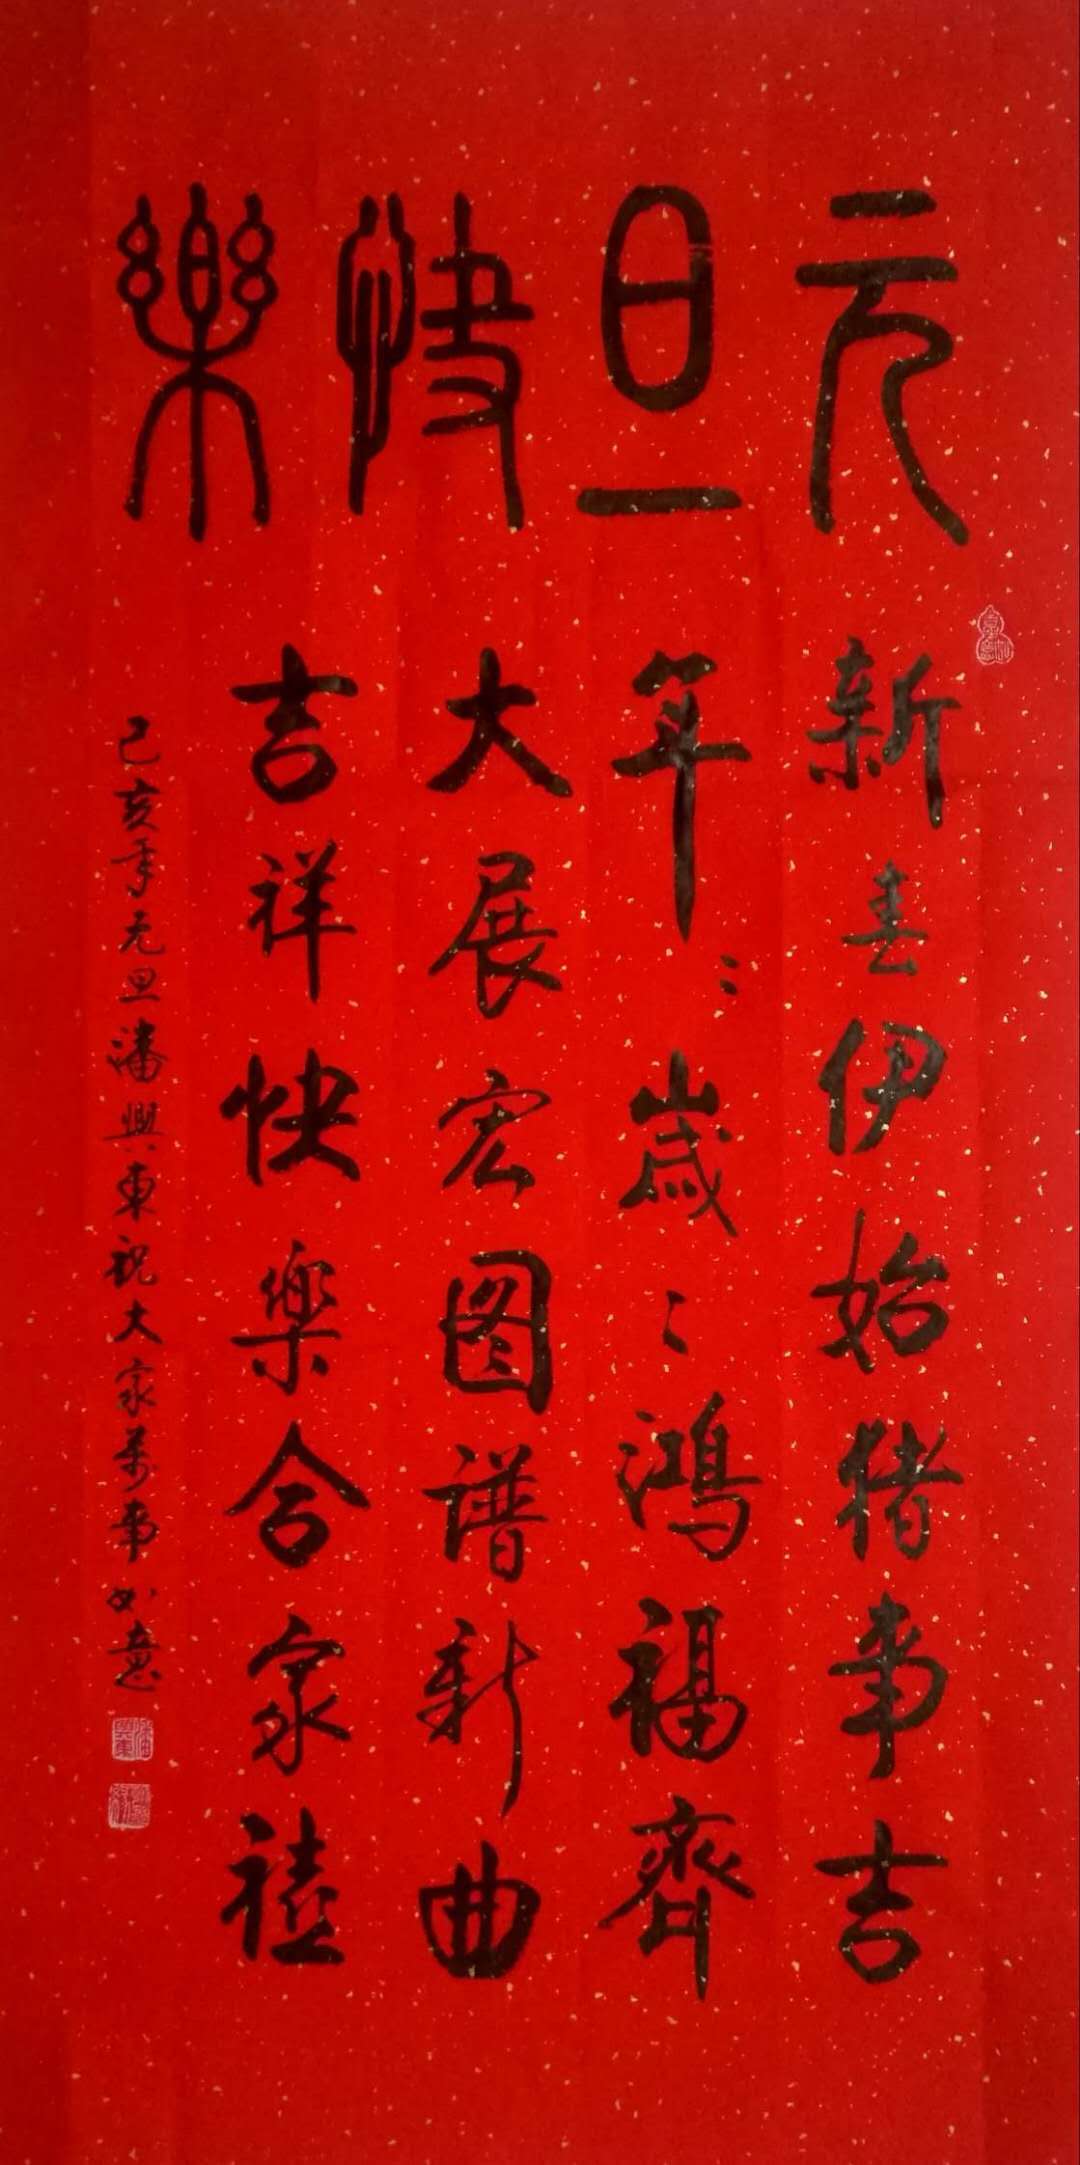 元旦快樂
新春伊始猪事吉
年〻歲〻鴻福齊
大展宏图谱新曲
吉祥快樂合家禧
己亥年元旦潘興東祝大家萬事如意
潘興東